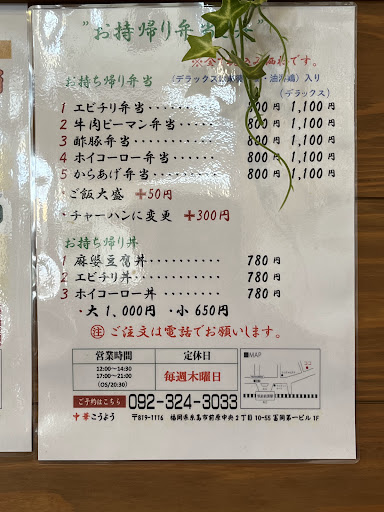 "お持帰り弁当
お持ち帰り弁当 (デラックス 油淋鶏)入り
(デラックス)
1 エビチリ弁当・・・・・・ 800円 1,100円
2 牛肉ピーマン弁当・・・・ 800円 1,100円
3 酢豚弁当・・・・・・・・ 800円 1,100円
4 ホイコーロー弁当・・・・ 800円 1,100円
5 からあげ弁当・・・・・・ 800円 1,100円
・ご飯大盛 ＋50円
・チャーハンに変更 ＋300円
お持ち帰り丼
1 麻婆豆腐丼・・・・・・・・ 780円
2 エビチリ丼・・・・・・・・ 780円
3 ホイコーロー丼・・・・・・ 780円
・大 1,000円 ・小 650円
㊟ ご注文は電話でお願いします。
営業時間 定休日 ■MAP
12:00〜14:30
17:00〜21:00
(OS/20:30)
毎週木曜日
ご予約はこちら 092-324-3033
中華こうよう 〒819-1116 福岡県糸島市前原中央2丁目10-55 冨岡第一ビル1F